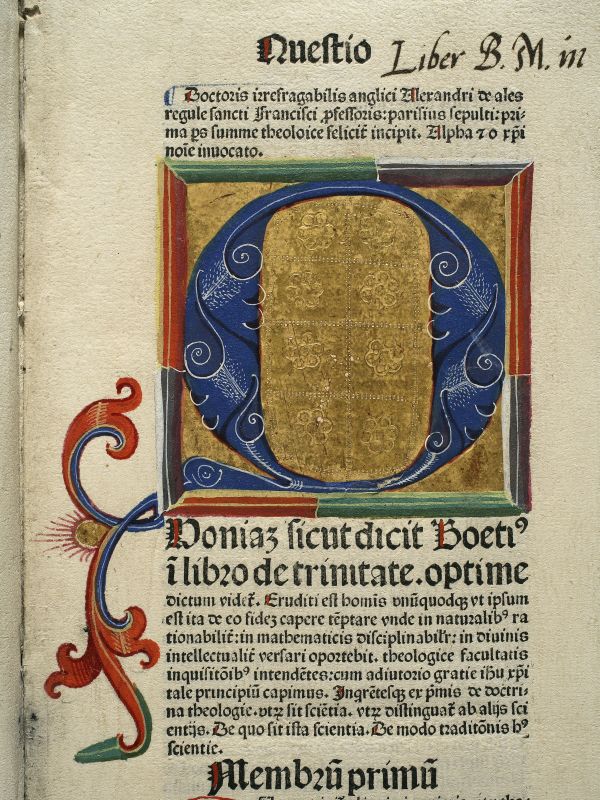 Questio Liber B. M. in
Doctoris irrefragabilis anglici Alexandri de ales
regule sancti Francisci ꝓfessoris: parisius sepulti: pri-
ma ꝑs summe theoloice felicit̄ incipit. Alpha ⁊ o xp̄i
noīe inuocato.
Q
Uoniaꝫ sicut dicit Boetiꝰ
ī libro de trinitate. optime
dictum videt̄. Eruditi est homis vnūquodqꝫ vt ipsum
est ita de eo fideꝫ capere tēptare vnde in naturalibꝰ ra
tionabilit̄: in mathematicis disciplinabilr̄: in diuinis
intellectualit̄ versari oportebit. theologice facultatis
inquisitōibꝰ intendētes: cum adiutorio gratie iħu xp̄i
tale principiū capimus. Inqrētesqꝫ ex p̄mis de doctri-
na theologie. vtꝝ sit sciētia. vtꝝ distinguat̄ ab alijs sci
entijs. De quo sit ista scientia. De modo traditōnis hꝰ
scientie.
Membrū primū